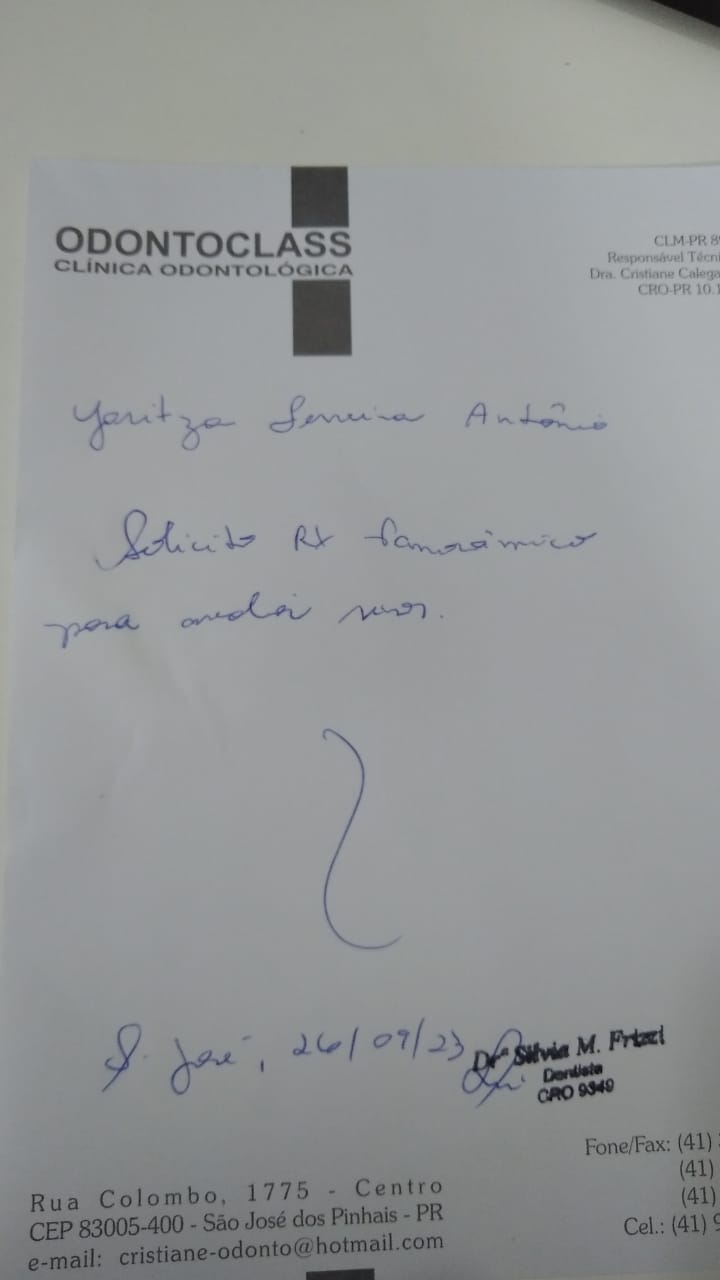 ODONTOCLASS
CLÍNICA ODONTOLÓGICA
CLM-PR 8
Responsável Técni
Dra. Cristiane Calega
CRO-PR 10.1
Yaritza Ferreira Antônio
Solicito RX Panorâmico
para avaliar
S. José, 26/09/23
Drª Silvia M. Frizzi
Dentista
CRO 9349
Fone/Fax: (41)
(41)
(41)
Cel.: (41) 9
Rua Colombo, 1775 - Centro
CEP 83005-400 - São José dos Pinhais - PR
e-mail: cristiane-odonto@hotmail.com